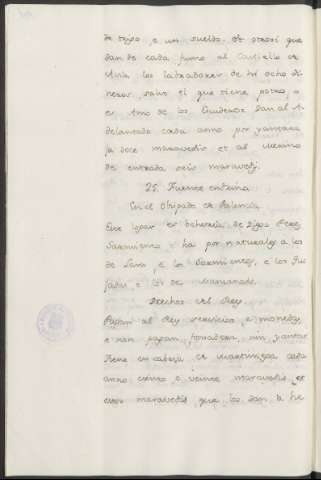 de trigo, e un sueldo. Et otrossi que
dan de cada fumo al Castiello de
los labradores de hi ocho di
neros, salvo el que tiene potro, o
es Amo de los Dan al A
delantado cada anno por yantar
doce maravedis et al merino
de entrada seis maravedis.
25. Fuente endrina
En el Obispado de Palencia
Este logar es behetria de Diego Perez
Sarmiento e ha por naturales a los
de Lara, e los Sarmientos, e los Gui
jados, e los de
Derechos del Rey
Pagan al Rey servicios, e monedas,
e non pagan fonsadera, nin yantar
tiene en cabeza de martiniega cada
anno ciento e veinte maravedis et
estos maravedis que los dan a he